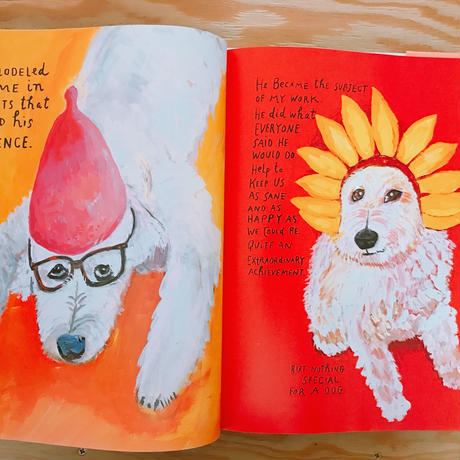 MODELED
ME in
TS that
D his
ENCE.
He BecAme the SUBJECT
OF MY WORK.
He did whAt
EVERYONE
SAID HE
WOULD DO.
Help to
Keep US
AS SANE
AND AS
HAPPY AS
We COULD BE.
QUITE AN
EXTRAORDINARY
AchievemeNT.
BUT NOTHING
SPECIAL
FOR A DOG.